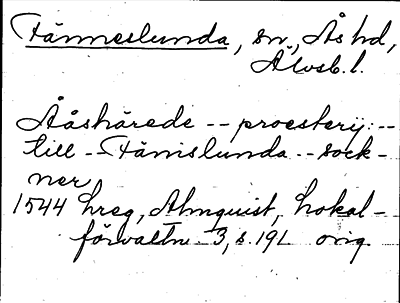 Fänneslunda, sn, Ås hd,
Älvsb. l.
Ååshärede -- proesterij: --
till -- Fämslunda -- sock-
ner
1544 hreg, Almquist, Lokal-
förvaltn 3, s. 191 orig.